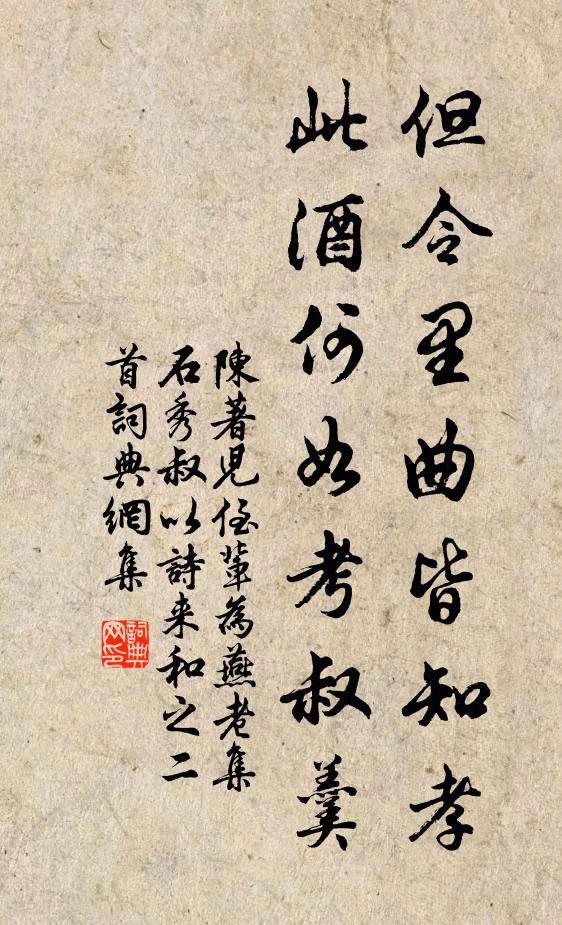 但令里曲皆知孝
此酒何如考叔羹
陳著児侄輩為燕老集
石秀叔以詩来和之二
首詞典網集
詞典
网印